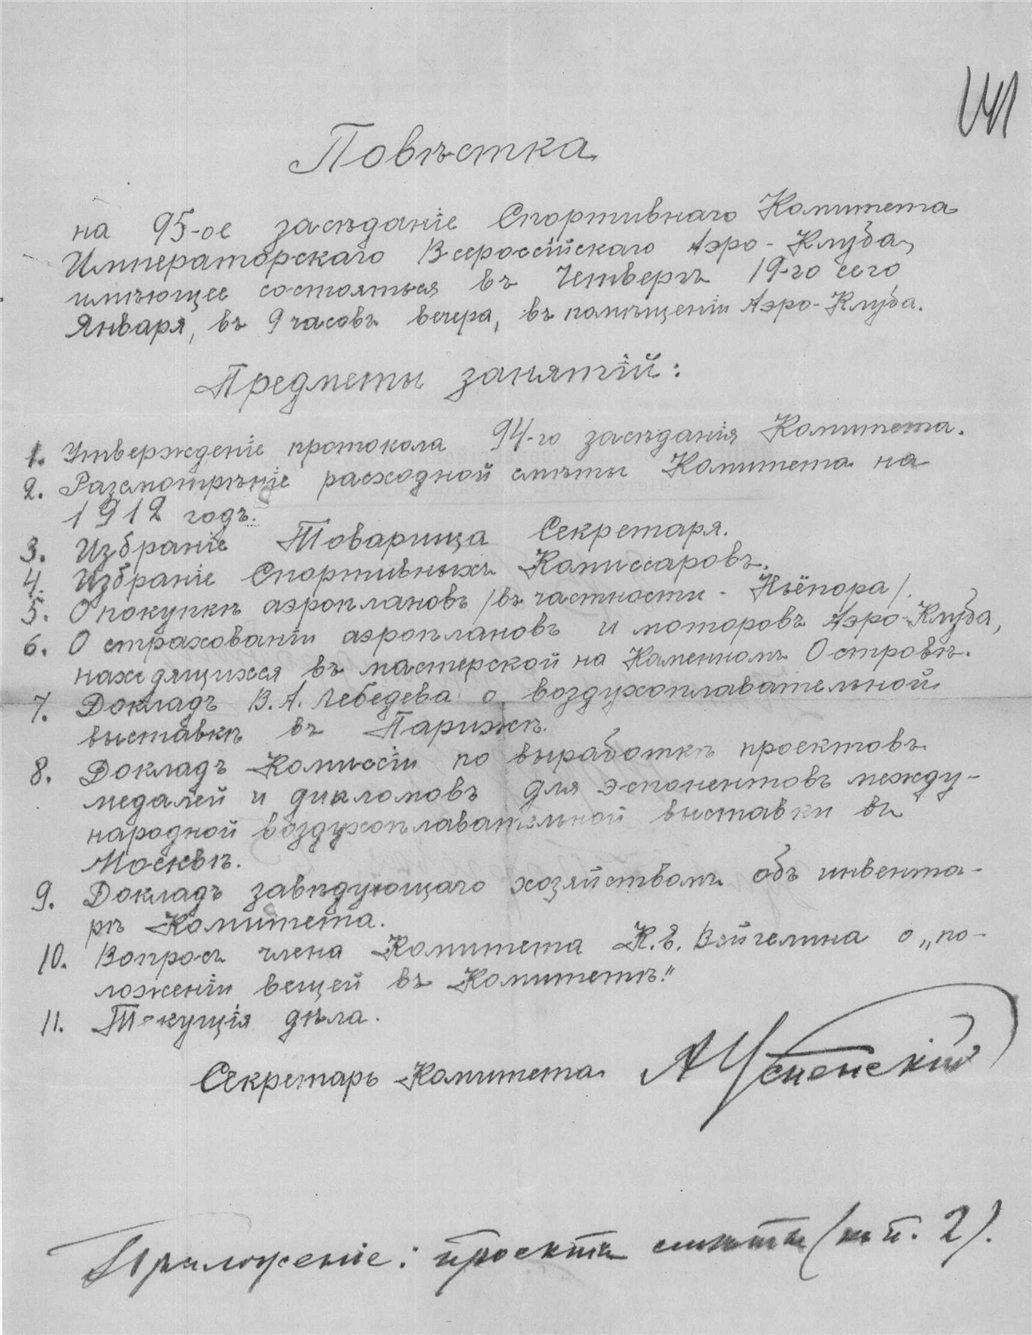 141
Повѣстка
на 95-ое засѣданіе Спортивнаго Комитета
Императорскаго Всероссійскаго Аэро-Клуба,
имѣющее состояться въ Четвергъ 19-го сего
Января, въ 9 часовъ вечера, въ помѣщеніи Аэро-Клуба.
Предметы занятій:
1. Утвержденіе протокола 94-го засѣданія Комитета.
2. Разсмотрѣніе расходной смѣты Комитета на
1912 годъ.
3. Избраніе Товарища Секретаря.
4. Избраніе Спортивныхъ Комиссаровъ.
5. О покупкѣ аэроплановъ /въ частности - Ньёпора/.
6. О страхованіи аэроплановъ и моторовъ Аэро-Клуба,
находящихся въ мастерской на Каменномъ Островѣ.
7. Докладъ В.А. Лебедева о воздухоплавательной
выставкѣ въ Парижѣ.
8. Докладъ Комиссіи по выработкѣ проектовъ
медалей и дипломовъ для эспонентовъ между-
народной воздухоплавательной выставки въ
Москвѣ.
9. Докладъ завѣдующаго хозяйствомъ объ инвента-
рѣ Комитета.
10. Вопросъ члена Комитета К.Е. Вейгелина о „по-
ложеніи вещей въ Комитетѣ."
11. Текущія дѣла.
Секретарь Комитета АУспенскій
Приложеніе: проектъ смѣты (къ п. 2).